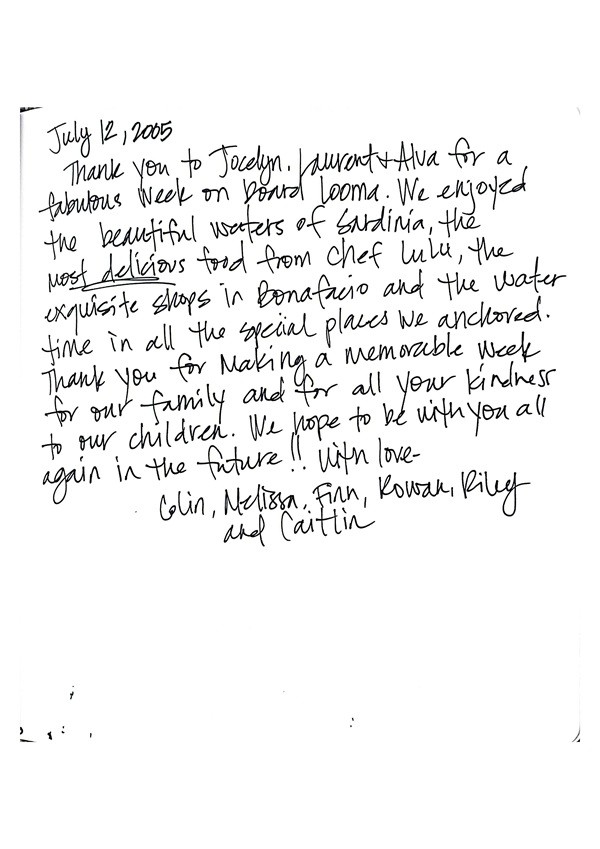 July 12, 2005
Thank you to Jocelyn, Laurent + Alva for a
fabulous week on board Looma. We enjoyed
the beautiful waters of Sardinia, the
most delicious food from chef Lulu, the
exquisite shops in Bonafacio and the water
time in all the special places we anchored.
Thank you for making a memorable week
for our family and for all your kindness
to our children. We hope to be with you all
again in the future!! With love-
Colin, Melissa, Finn, Rowan, Riley
and Caitlin